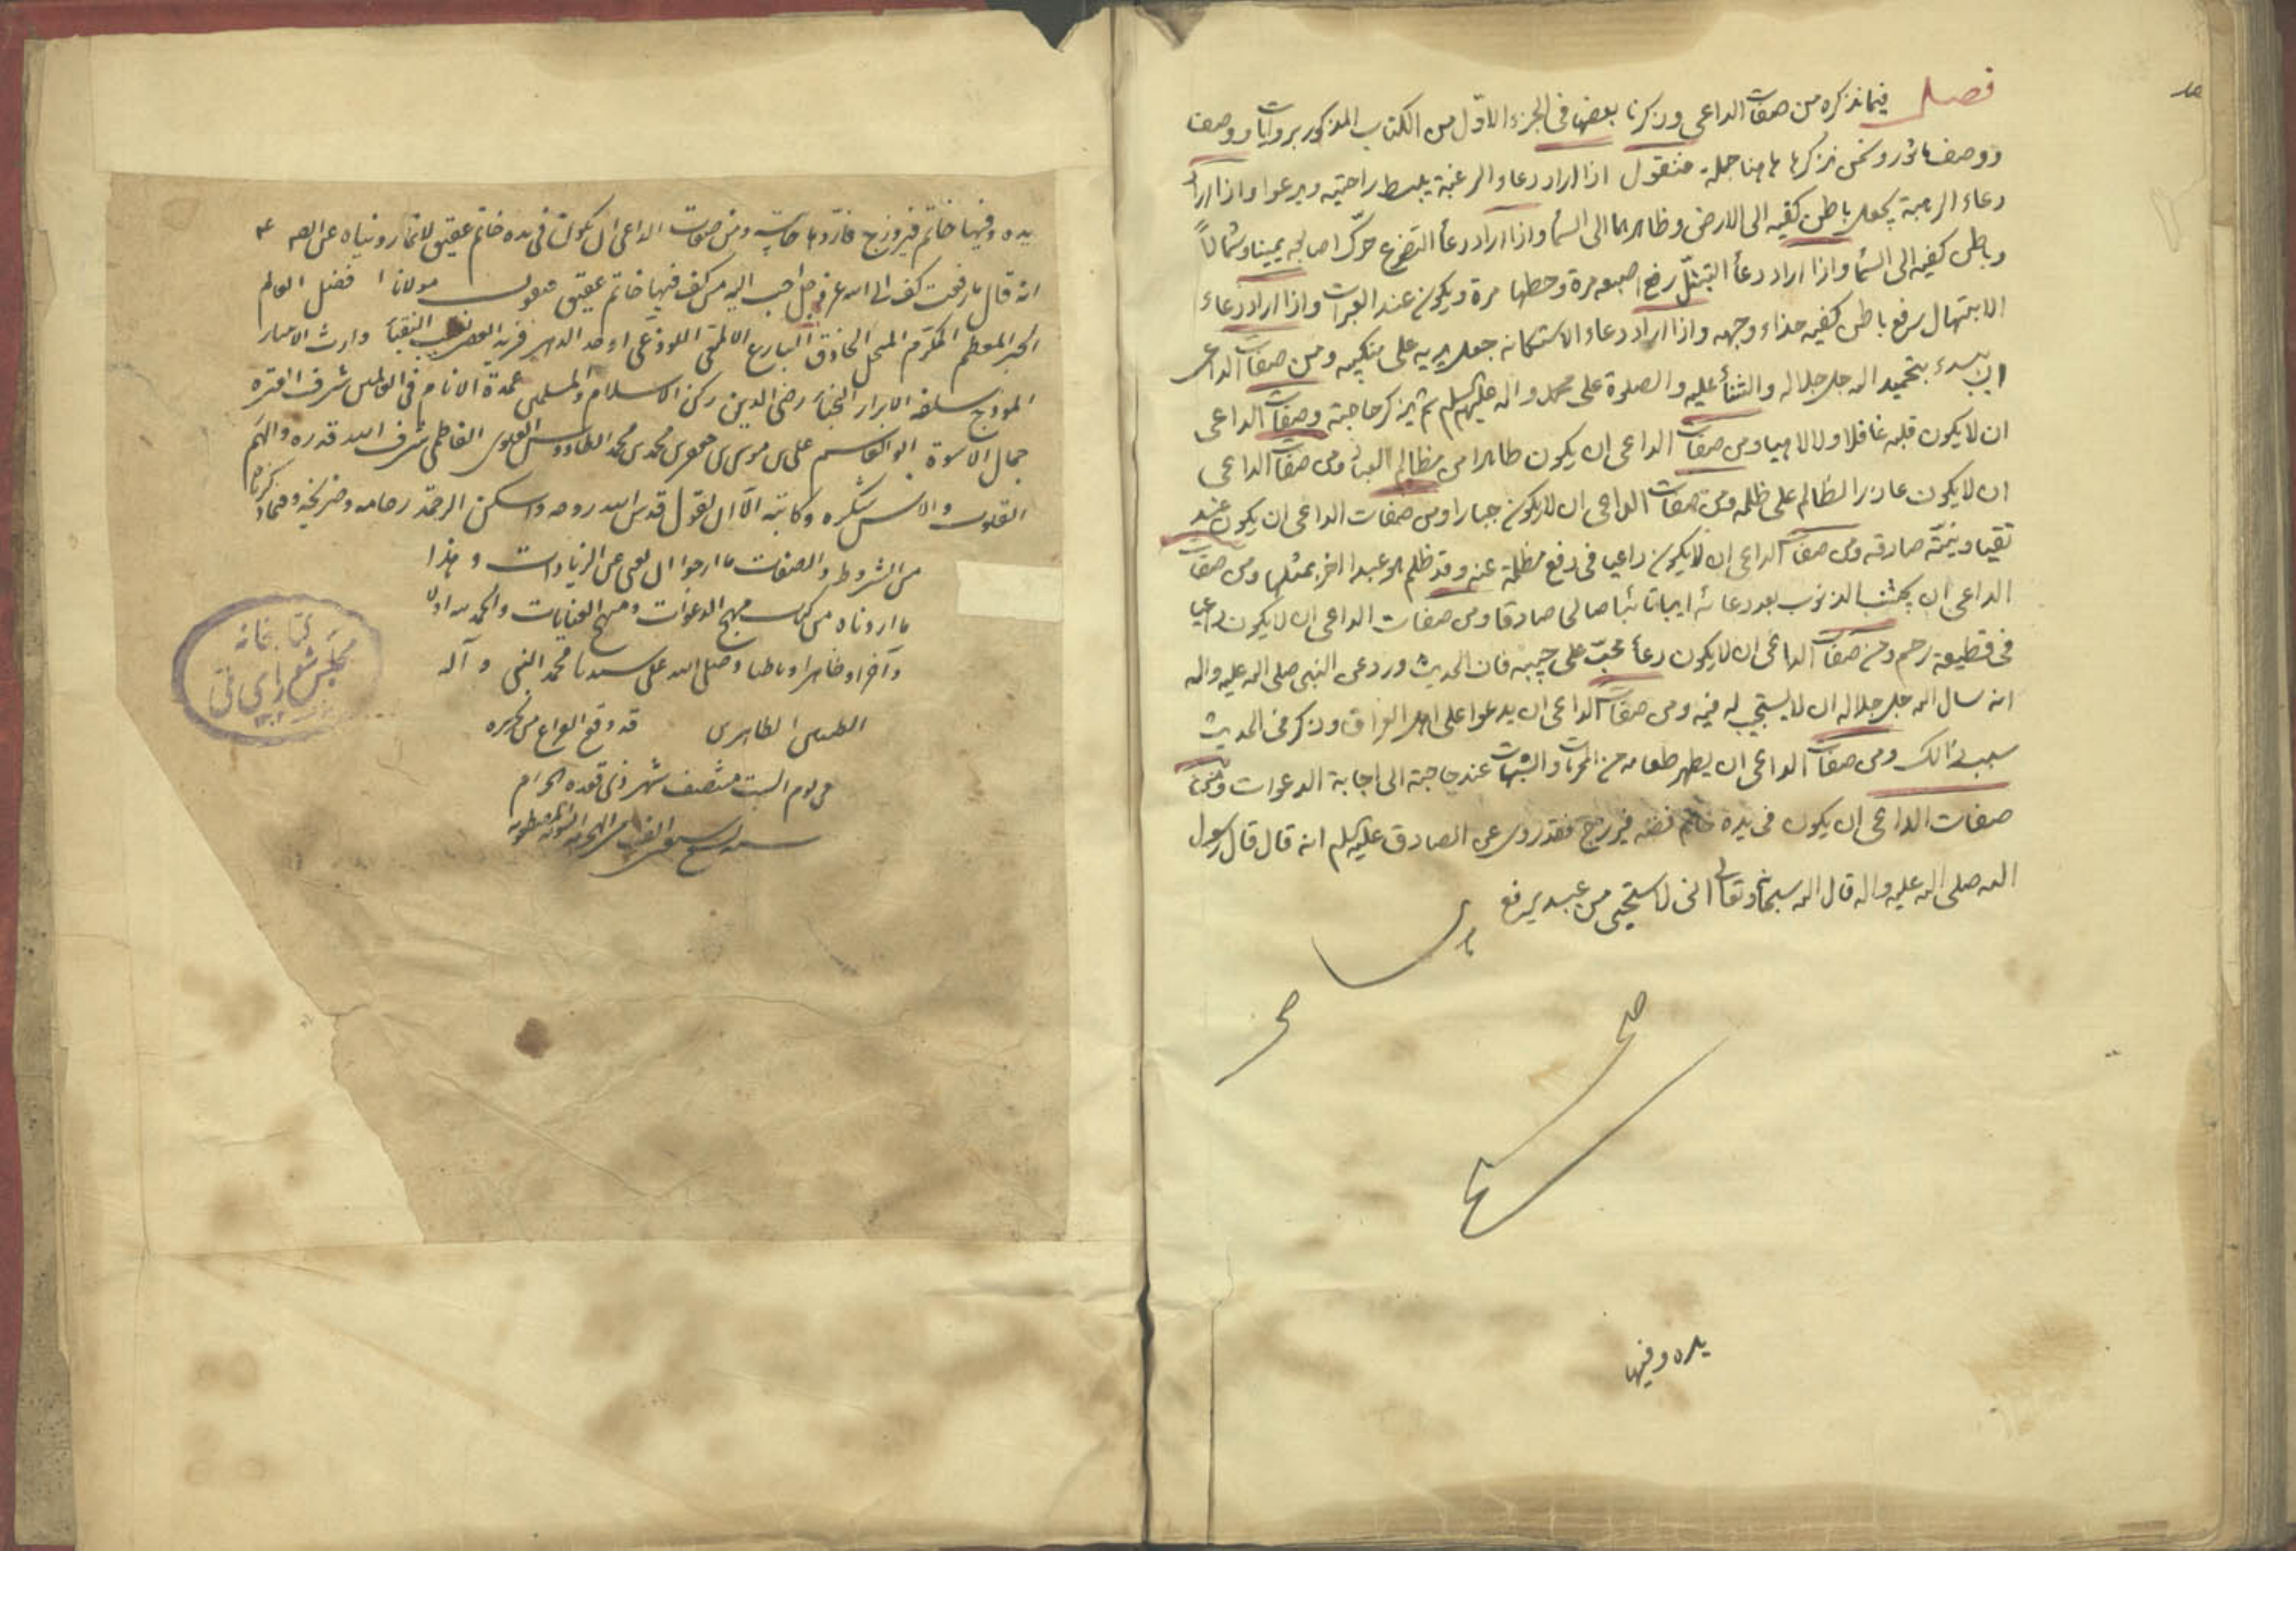 فصل فيما نذكره من صفات الداعى وذكرنا بعضها فى الجزء الاول من الكتاب المذكور بروايات ووصف
ووصف ماثور ونحن نذكرها هاهنا جملة فنقول اذا اراد دعاء الرغبة يبسط راحتيه ويدعوا واذا اراد
دعاء الرهبة يجعل باطن كفيه الى الارض وظاهرهما الى السماء واذا اراد دعاء التضرع حرّك اصابعه يمينا وشمالاً
وباطن كفيه الى السماء واذا اراد دعاء التبتل رفع اصبعه مرة وحطها مرة ويكون عند العبرات واذا اراد دعاء
الابتهال رفع باطن كفيه حذاء وجهه واذا اراد دعاء الاستكانه جعل يديه على منكبيه ومن صفات الداعى
ان يبدء بتحميد الله جل جلاله والثناء عليه والصلوة على محمد واله عليهم السلم ثم يذكر حاجته وصفات الداعى
ان لا يكون قلبه غافلا ولا لاهيا ومن صفات الداعى ان يكون طاهرا من مظالم العباد ومن صفات الداعى
ان لا يكون عاذرا لظالم على ظلمه ومن صفات الداعى ان لا يكون جبارا ومن صفات الداعى ان يكون عند
تقيا ونيته صادقه ومن صفات الداعى ان لا يكون داعيا فى دفع مظلمة عنه وقد ظلم هو عبدا اخر بمثلها ومن صفات
الداعى ان يجتنب الذنوب بعد دعائه ايابا تائبا صالحا صادقا ومن صفات الداعى ان لا يكون داعيا
فى قطيعة رحم ومن صفات الداعى ان لا يكون دعاء محبّ على حبيبه فان الحديث ورد عن النبى صلى الله عليه واله
انه سال الله جل جلاله ان لا يستجيب له فيه ومن صفات الداعى ان يدعوا على اهل العراق وذكر فى الحديث
سبب ذالك ومن صفات الداعى ان يطهر طعامه من المحرمات والشبهات عند حاجته الى اجابة الدعوات ومن
صفات الداعى ان يكون فى يده خاتم فصه فيروزج فقد روى عن الصادق عليه السلم انه قال قال رسول
الله صلى الله عليه واله قال الله سبحانه وتعالى انى لاستحيى من عبد يرفع
صح
يده وفيها
يده وفيها خاتم فيروزج فاردها خايبة ومن صفات الداعى ان يكون فى يده خاتم عقيق لانا روينا عن الصه
انه قال ما رفعت كف الى الله عز وجل احب اليه من كف فيها خاتم عقيق يقول مولانا افضل العالم
الحبر المعظم المكرم الحاذق البارع الالمعى اللوذعى اوحد الدهر فريد العصر نقيب النقباء وارث
سلفه الابرار النجباء رضى الدين ركن الاسلام والمسلمين عمدة الانام فى العالمين شرف العترة
جمال الاسرة ابو القاسم على بن موسى بن جعفر بن محمد بن محمد الطاووس العلوى الفاطمى شرف الله قدره والهم
القلوب والالسن شكره وكاتبه الآن يقول قدس الله روحه واسكن الرحمة
من الشروط والصفات ما ارجوا ان يغنى عن الزيادات وهذا
ما اردناه من كتاب مهج الدعوات ومنهج العنايات والحمد لله اولا
وآخرا وظاهرا وباطنا وصلى الله على سيدنا محمد النبى وآله
الطيبين الطاهرين قد وقع الفراغ من تحريره
فى يوم السبت منتصف شهر ذى قعدة الحرام
كتابخانه
مجلس شوراى ملى